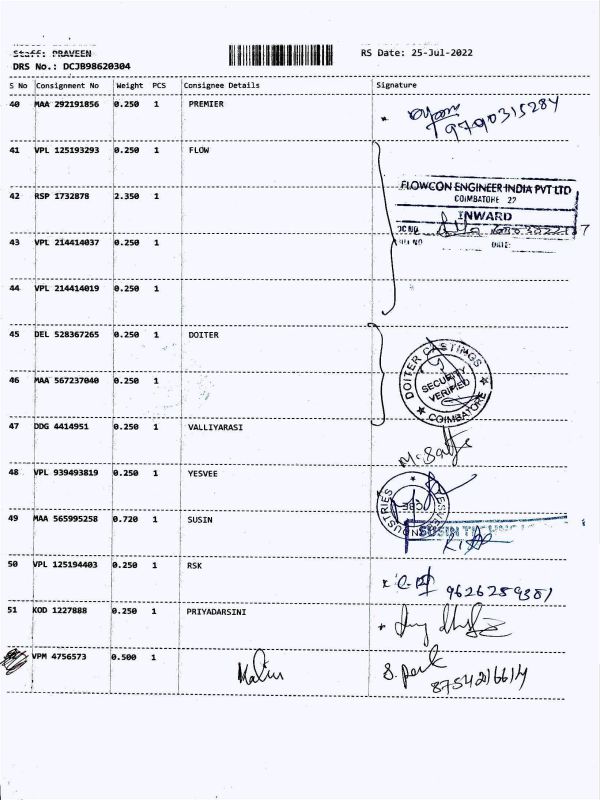 Staff: PRAVEEN
RS Date: 25-Jul-2022
DRS No.: DCJB98620304
S No Consignment No Weight PCS Consignee Details Signature
40 MAA 292191856 0.250 1 PREMIER
9790315284
41 VPL 125193293 0.250 1 FLOW
FLOWCON ENGINEER INDIA PVT LTD
COIMBATORE 22
42 RSP 1732878 2.350 1
INWARD
43 VPL 214414037 0.250 1
DATE:
44 VPL 214414019 0.250 1
45 DEL 528367265 0.250 1 DOITER
DOITER CASTINGS
SECURITY
VERIFIED
COIMBATORE
46 MAA 567237040 0.250 1
47 DDG 4414951 0.250 1 VALLIYARASI
48 VPL 939493819 0.250 1 YESVEE
49 MAA 565995258 0.720 1 SUSIN
SUSIN
50 VPL 125194403 0.250 1 RSK
9626259381
51 KOD 1227888 0.250 1 PRIYADARSINI
VPM 4756573 0.500 1